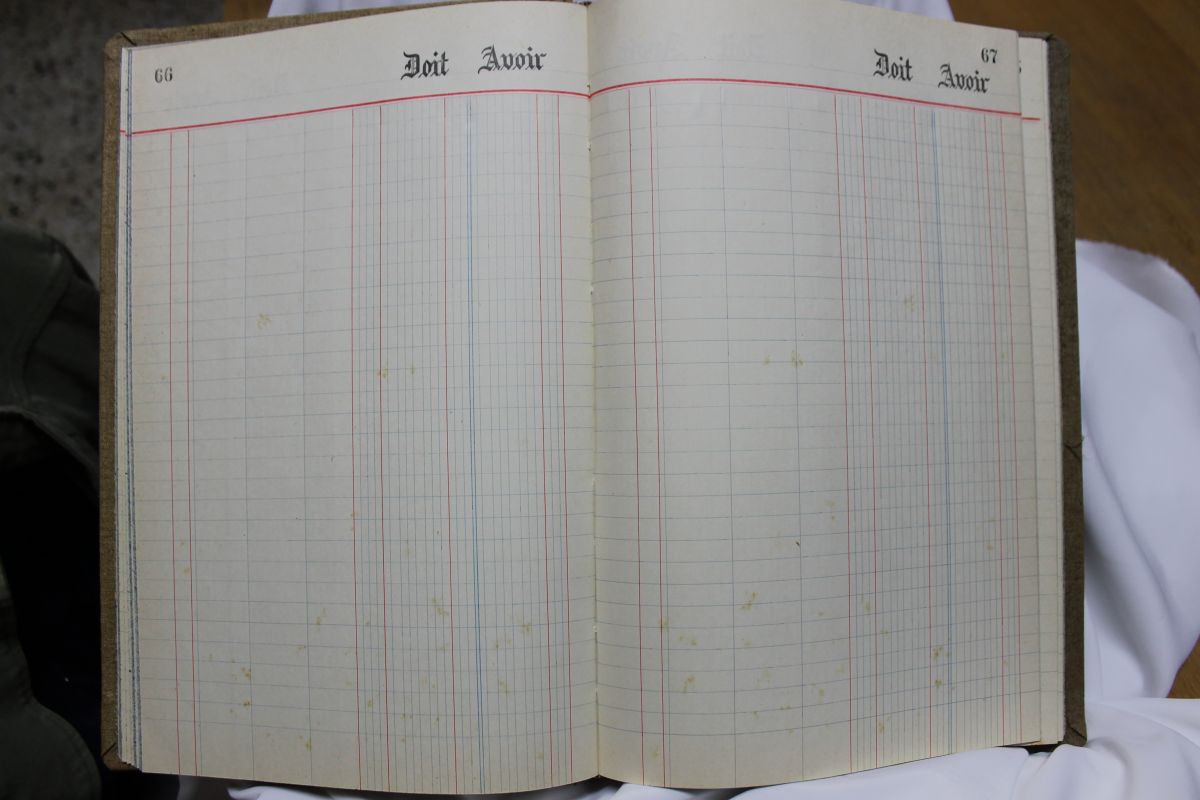 66 Doit Avoir
67
Doit Avoir